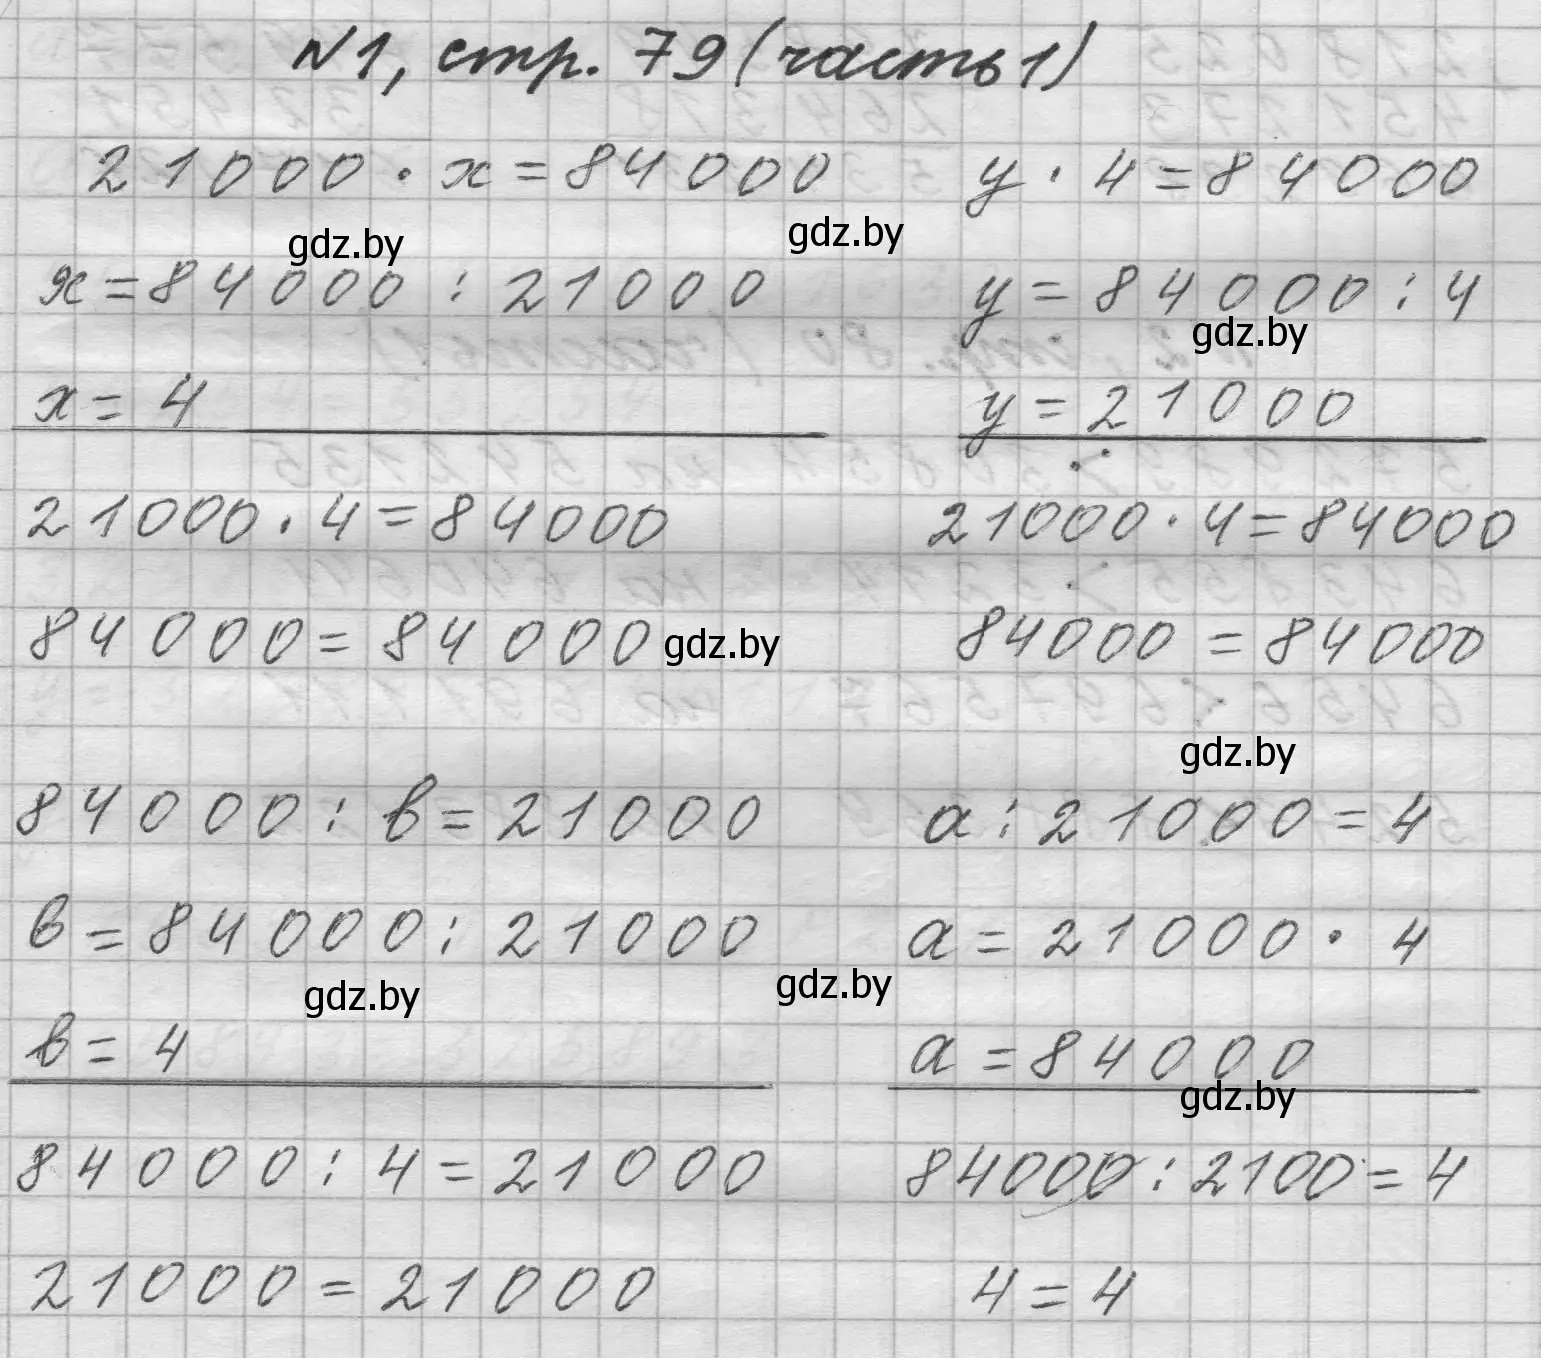 N1, стр. 79 (часть 1)
21000 · x = 84000
x = 84000 : 21000
x = 4
21000 · 4 = 84000
84000 = 84000
y · 4 = 84000
y = 84000 : 4
y = 21000
21000 · 4 = 84000
84000 = 84000
84000 : в = 21000
в = 84000 : 21000
в = 4
84000 : 4 = 21000
21000 = 21000
a : 21000 = 4
a = 21000 · 4
a = 84000
84000 : 2100 = 4
4 = 4
gdz.by
gdz.by
gdz.by
gdz.by
gdz.by
gdz.by
gdz.by
gdz.by